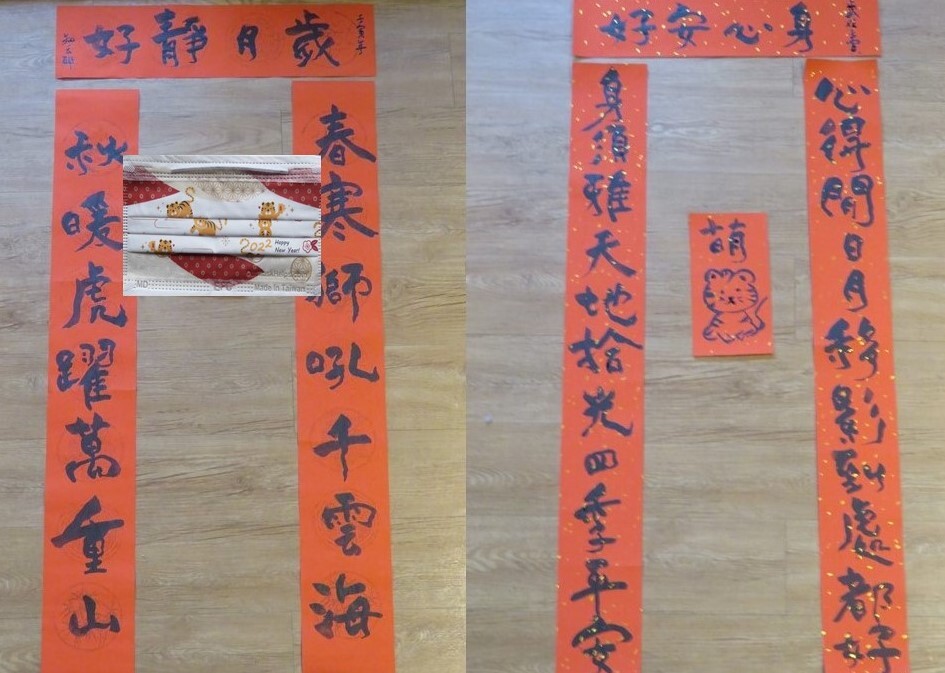 壬寅年
歲月靜好
春寒獅吼千雲海
秋暖虎躍萬重山
2022 Happy New Year!
MD
Made In Taiwan
身心安好
心得閒日月移影到處都好
身須雅天地拾光四季平安
萌